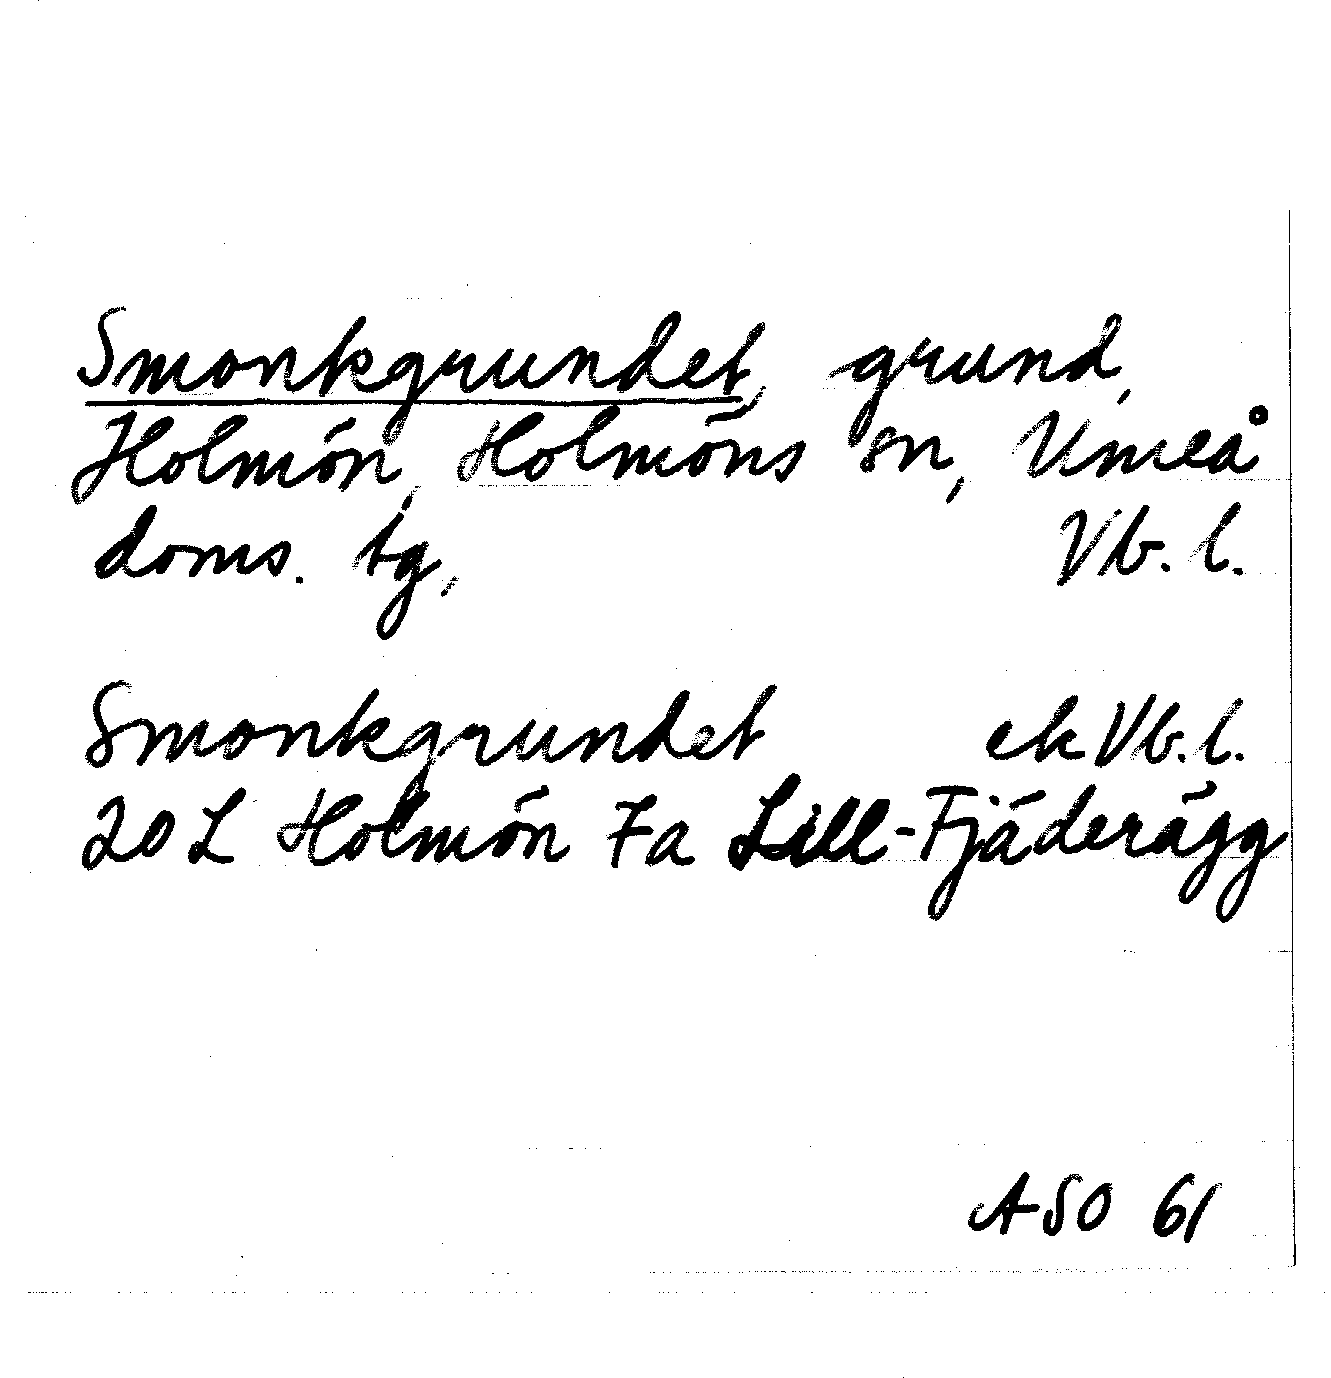 Smonkgrundet, grund,
Holmön, Holmöns sn, Umeå
doms. tg, Vb. l.
Smonkgrundet ek Vb. l.
20 L Holmön 7a Lill-Fjäderägg
ASO 61